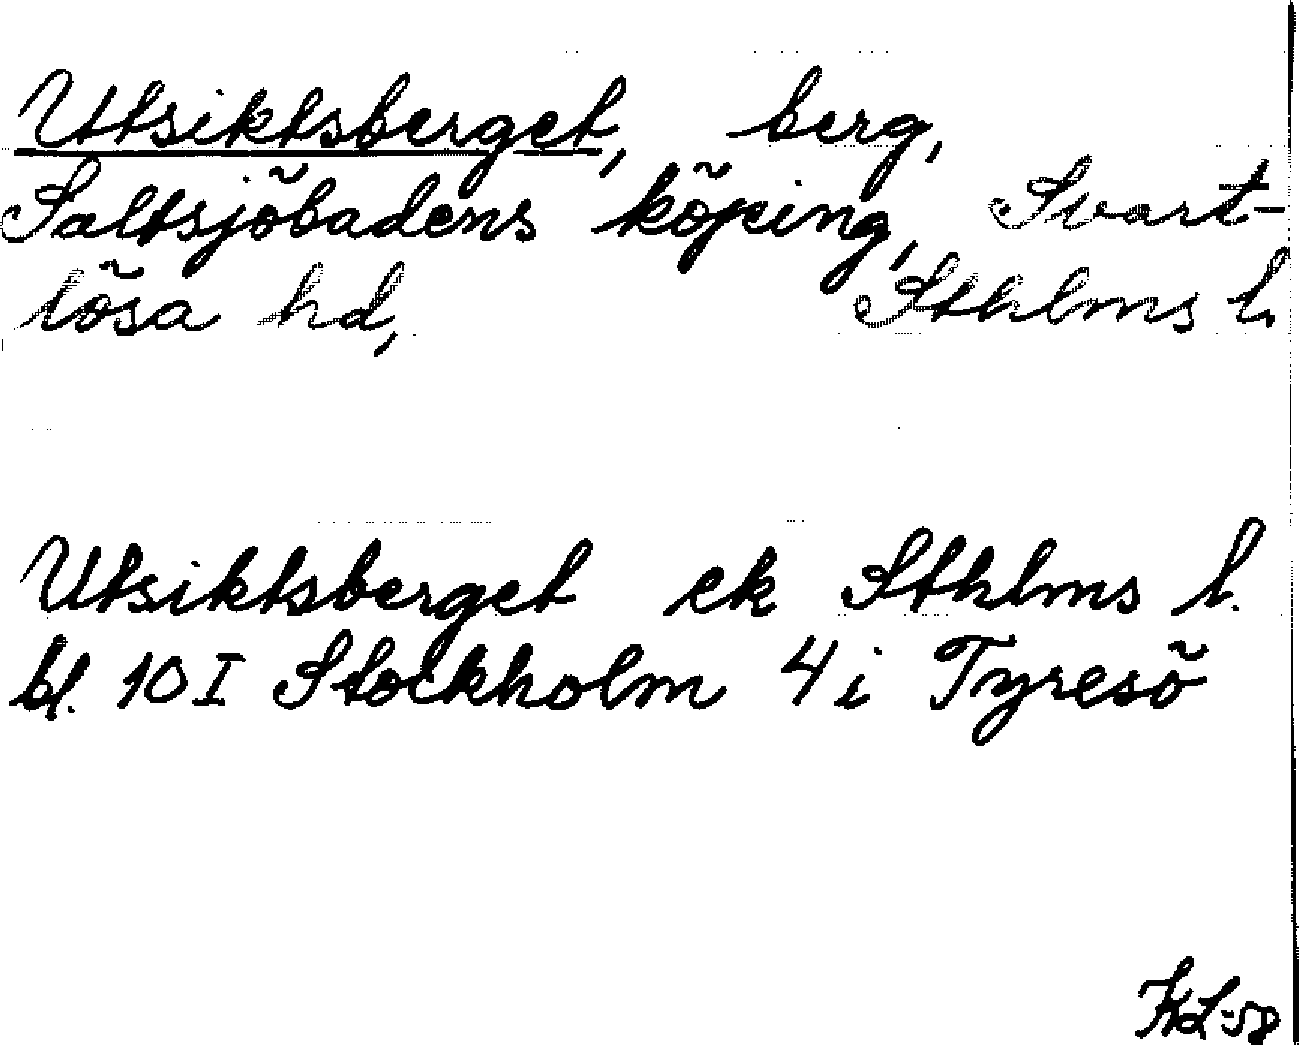 Utsiktsberget, berg,
Saltsjöbadens köping, Svart-
lösa hd, Sthlms l.
Utsiktsberget ek Sthlms l.
bl. 10 I Stockholm 4 i Tyresö
KL-58